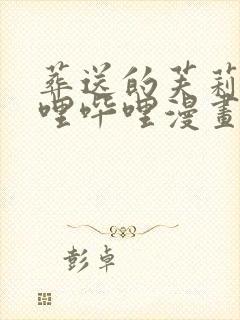 葬送的芙莉
哩哔哩漫畫
彭卓